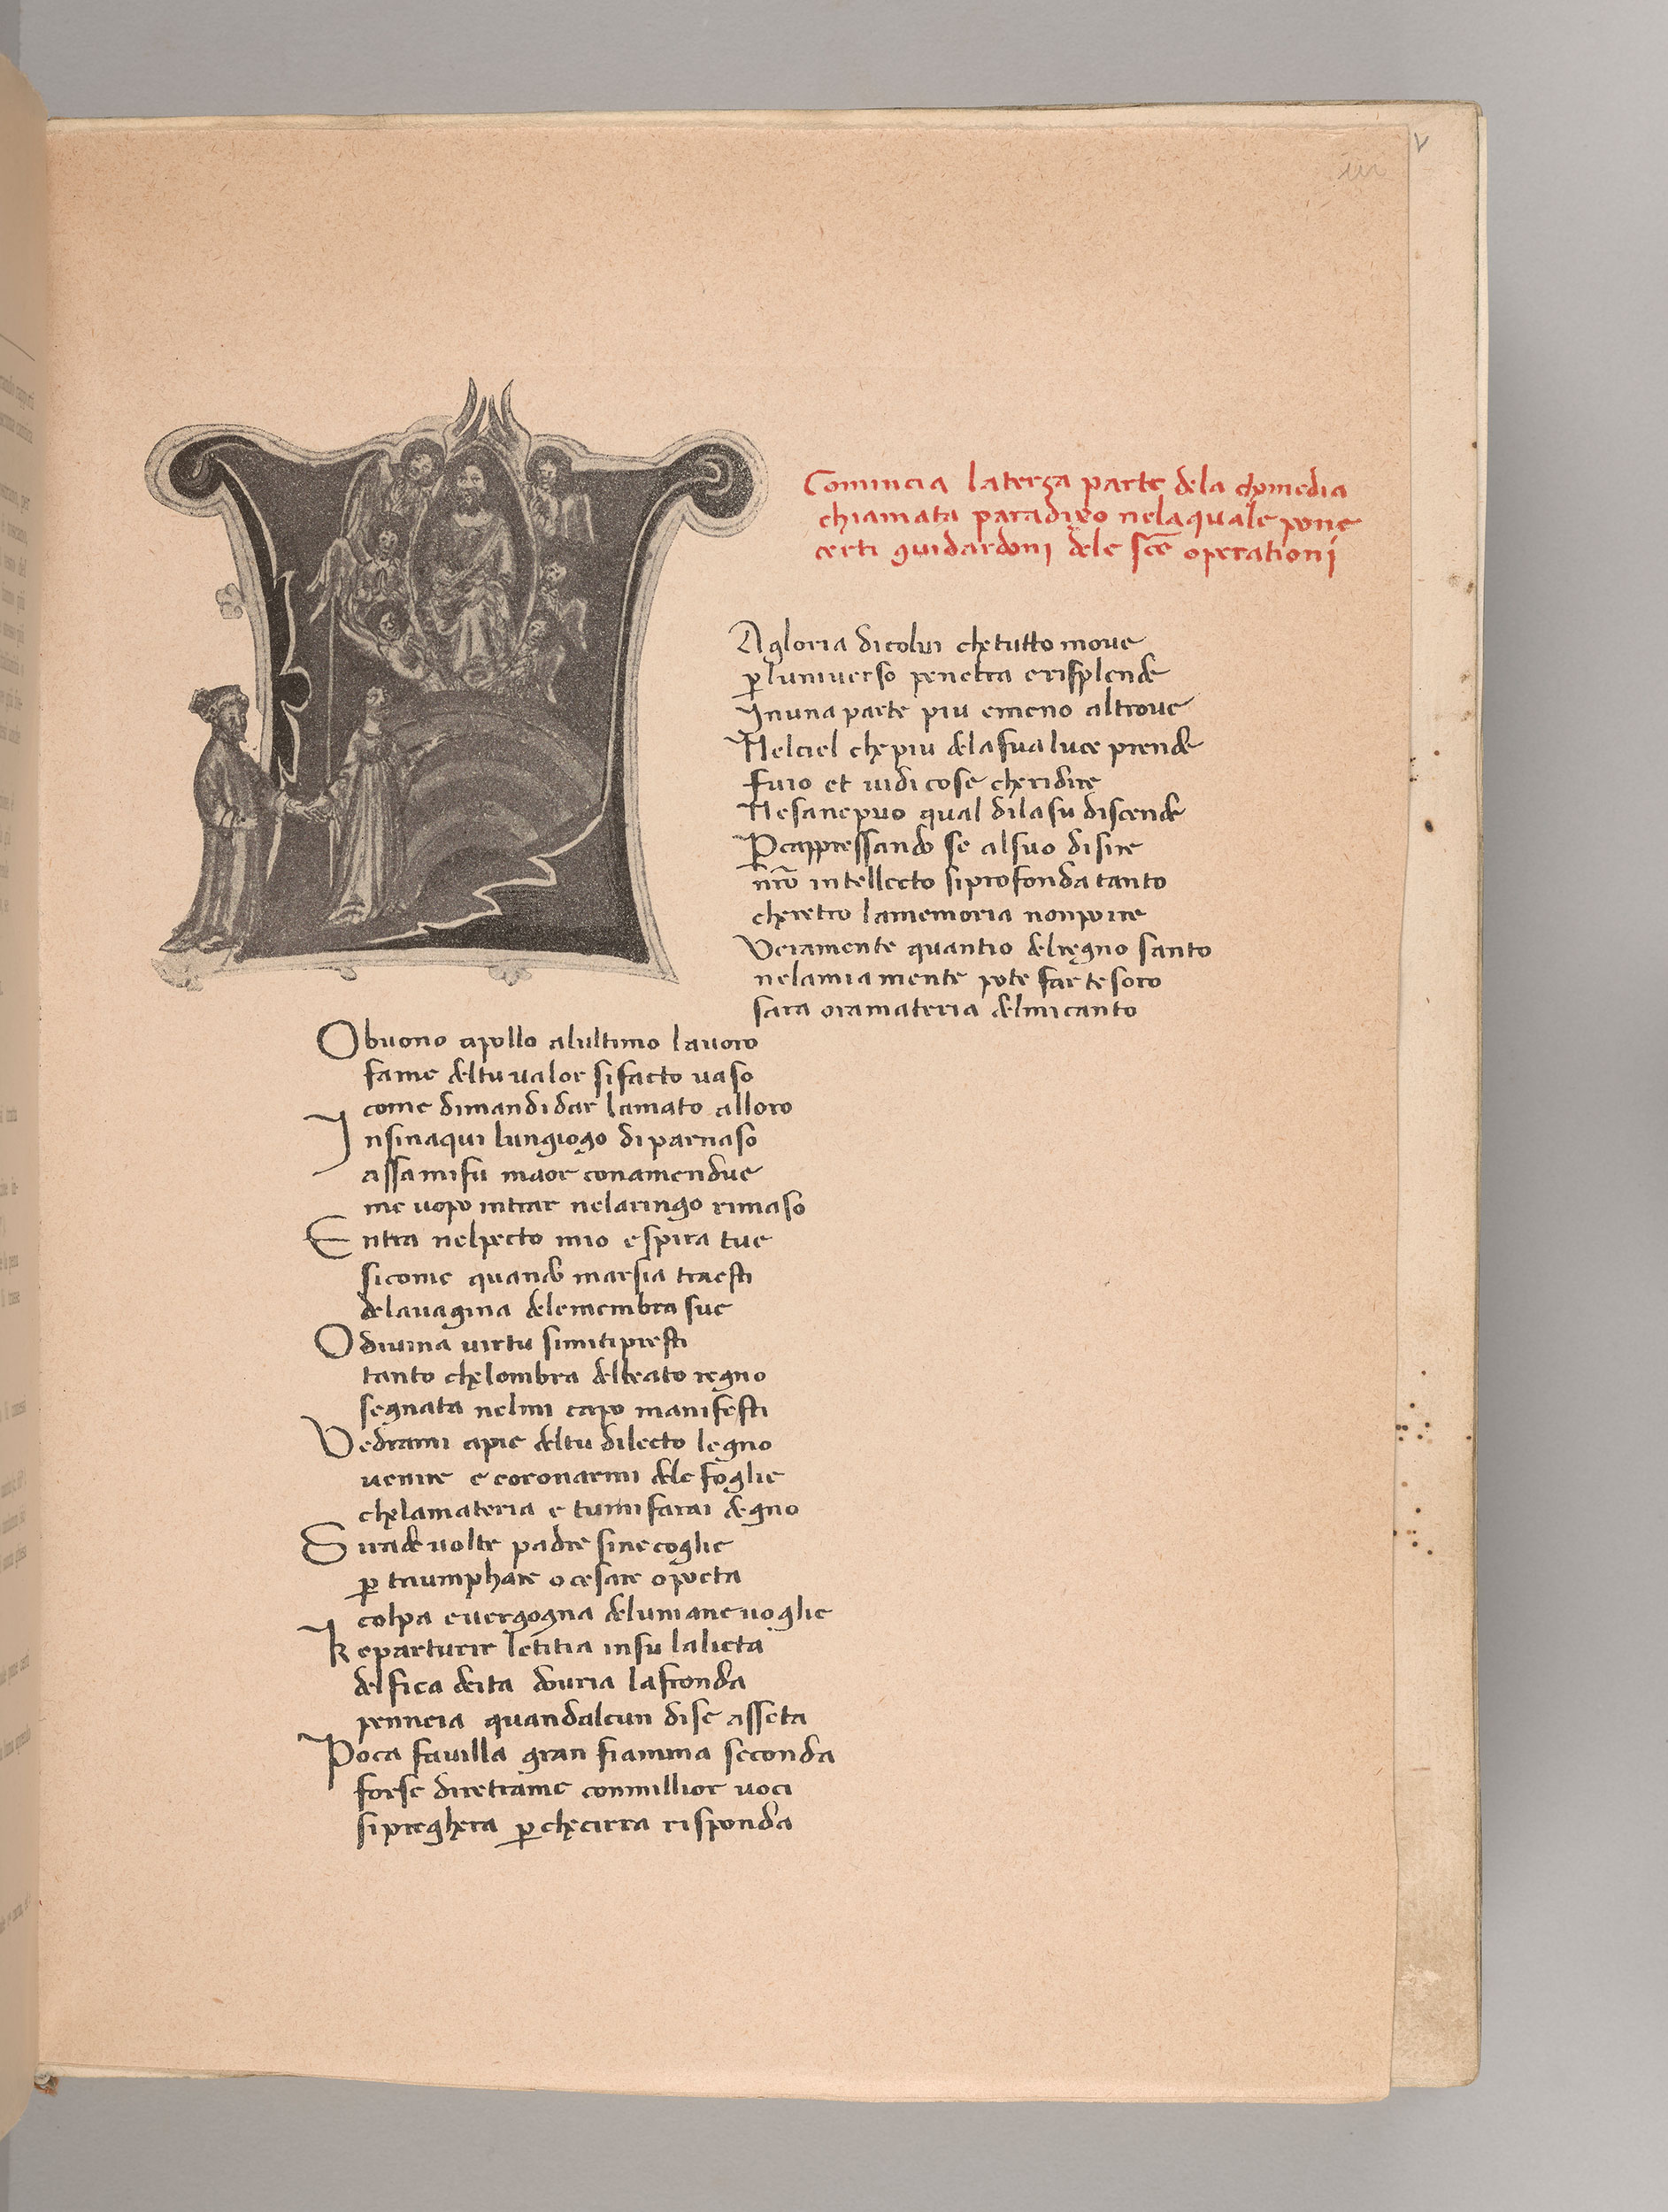 Comincia laterça parte dela chomedia
chiamata paradixo nelaquale pone
certi guidardoni dele sc̄e operationi
A gloria dicolui chetutto moue
ꝑ luniuerso penetra erisplende
Inuna parte piu emeno altroue
Nelciel chepiu delasualuce prende
fuio et uidi cose cheridire
Nesanepuo qual dilasu discende
Pcappressando se alsuo disire
nr̄o intellecto siprofonda tanto
cheretro lamemoria nonpo ire
Veramente quantio delregno santo
nelamia mente pote far tesoro
sara oramateria delmi canto
O buono apollo alultimo lauoro
fame deltu ualor sifacto uaso
come dimandi dar lamato alloro
Insinaqui lungiogo di parnaso
assa mifu maor conamendue
me uopo intrar nelaringo rimaso
Entra nelpecto mio espira tue
sicome quando marsia traesti
delauagina delemembra sue
O diuina uirtu simitipresti
tanto chelombra delbeato regno
segnata nelmi capo manifesti
Vedrami apie deltu dilecto legno
uenire e coronarmi dele foglie
chelamateria e tumi farai degno
S irade uolte padre sinecoglie
ꝑ triumphare o cesare o poeta
colpa euergogna delumane uoglie
K eparturir letitia insu lalieta
delfica deita douria lafronda
penneia quandalcun dise asseta
Poca fauilla gran fiamma seconda
forse diretrame conmillior uoci
sipreghera ꝑchecirra risponda